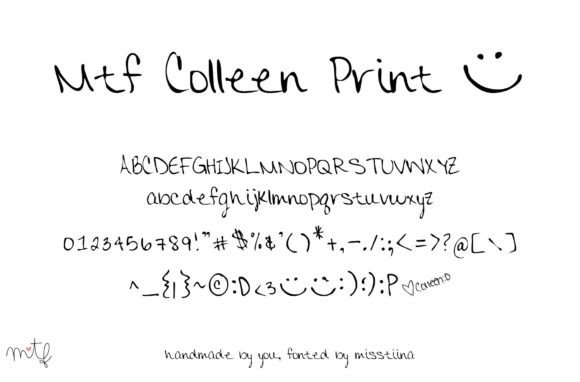 Mtf Colleen Print
ABCDEFGHIJKLMNOPQRSTUVWXYZ
abcdefghijklmnopqrstuvwxyz
0123456789!"#$%&'()*+,-./:;<=>?@[\]
^_{|}~©:D<3:):):P ♡Colleen:D
mtf
handmade by you, fonted by misstiina